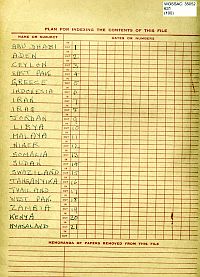 WOSSAC: 35052
631
(100)
PLAN FOR INDEXING THE CONTENTS OF THIS FILE
NAME OR SUBJECT
DATES OR NUMBERS
ABU DHABI 1
ADEN 2
CEYLON 3
EAST PAK 4
GREECE 5
INDONESIA 6
IRAN 7
IRAQ 8
JORDAN 9
LIBYA 10
MALAYA 11
NIGER 12
SOMALIA 13
SUDAN 14
SWAZILAND 15
TANGANYIKA 16
THAILAND 17
WEST PAK 18
ZAMBIA 19
KENYA 20
NYASALAND 21
MEMORANDA OF PAPERS REMOVED FROM THIS FILE